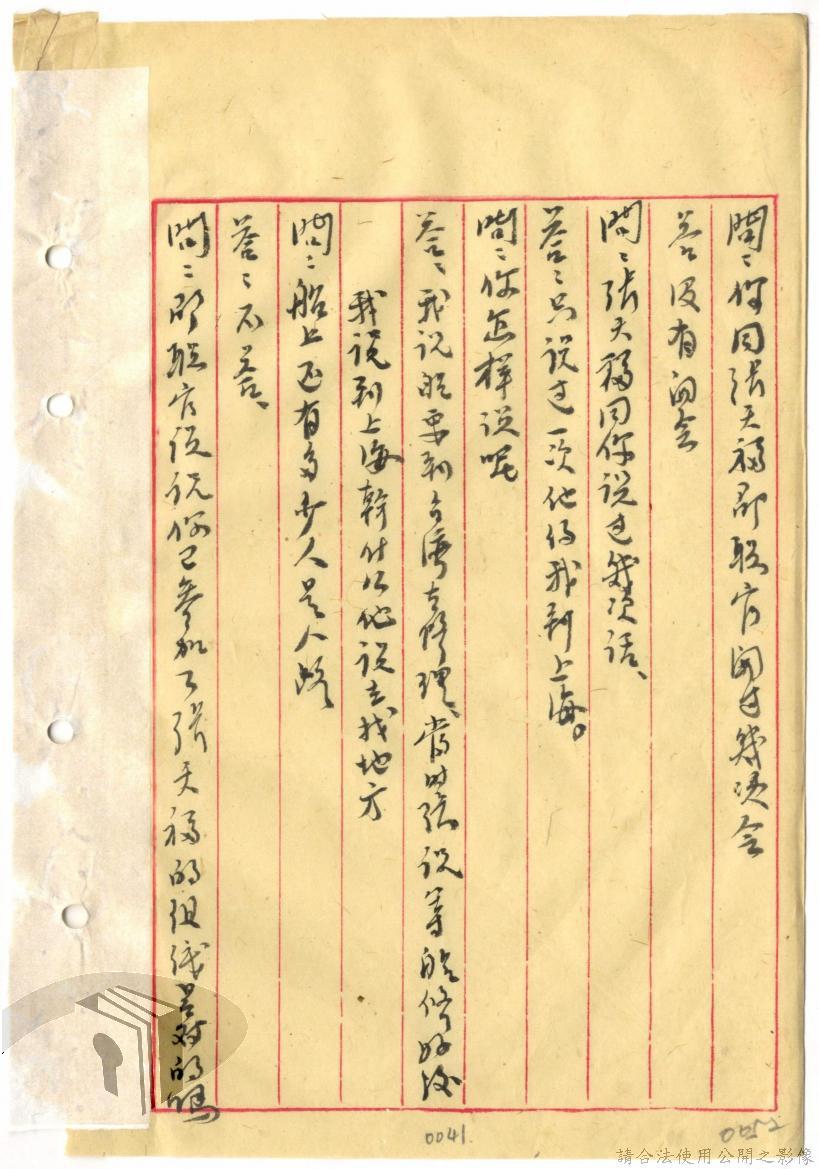 問：你同張天福邵联官開过幾次会
答没有開会
問：張天福同你說过幾次话、
答：只說过一次他俉我到上海。
問：你怎样說呢
答：我說船要到台湾去修理、當時張說等船修好後
我說到上海幹什么他說去找地方
問：船上还有多少人是人
答：不答、
問：邵联官說 你已參加了張天福的组织是对的嗎
0041.
0052
請合法使用公開之影像